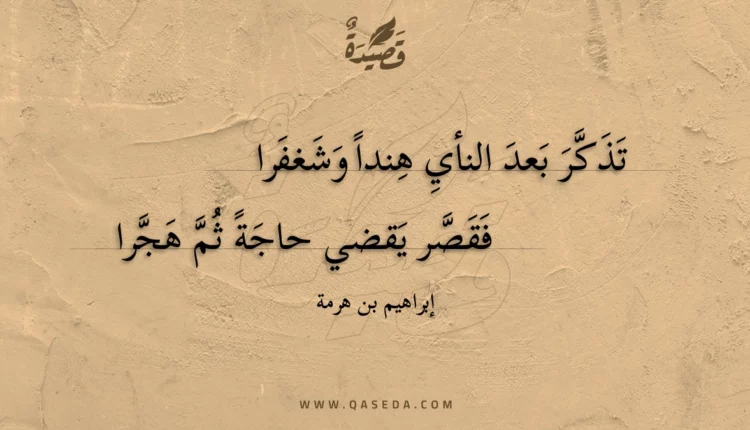 قَصِيدَةٌ
تَذَكَّرَ بَعدَ النأيِ هِنداً وَشَغفَرا
فَقَصَّر يَقضي حاجَةً ثُمَّ هَجَّرا
إبراهيم بن هرمة
WWW.QASEDA.COM